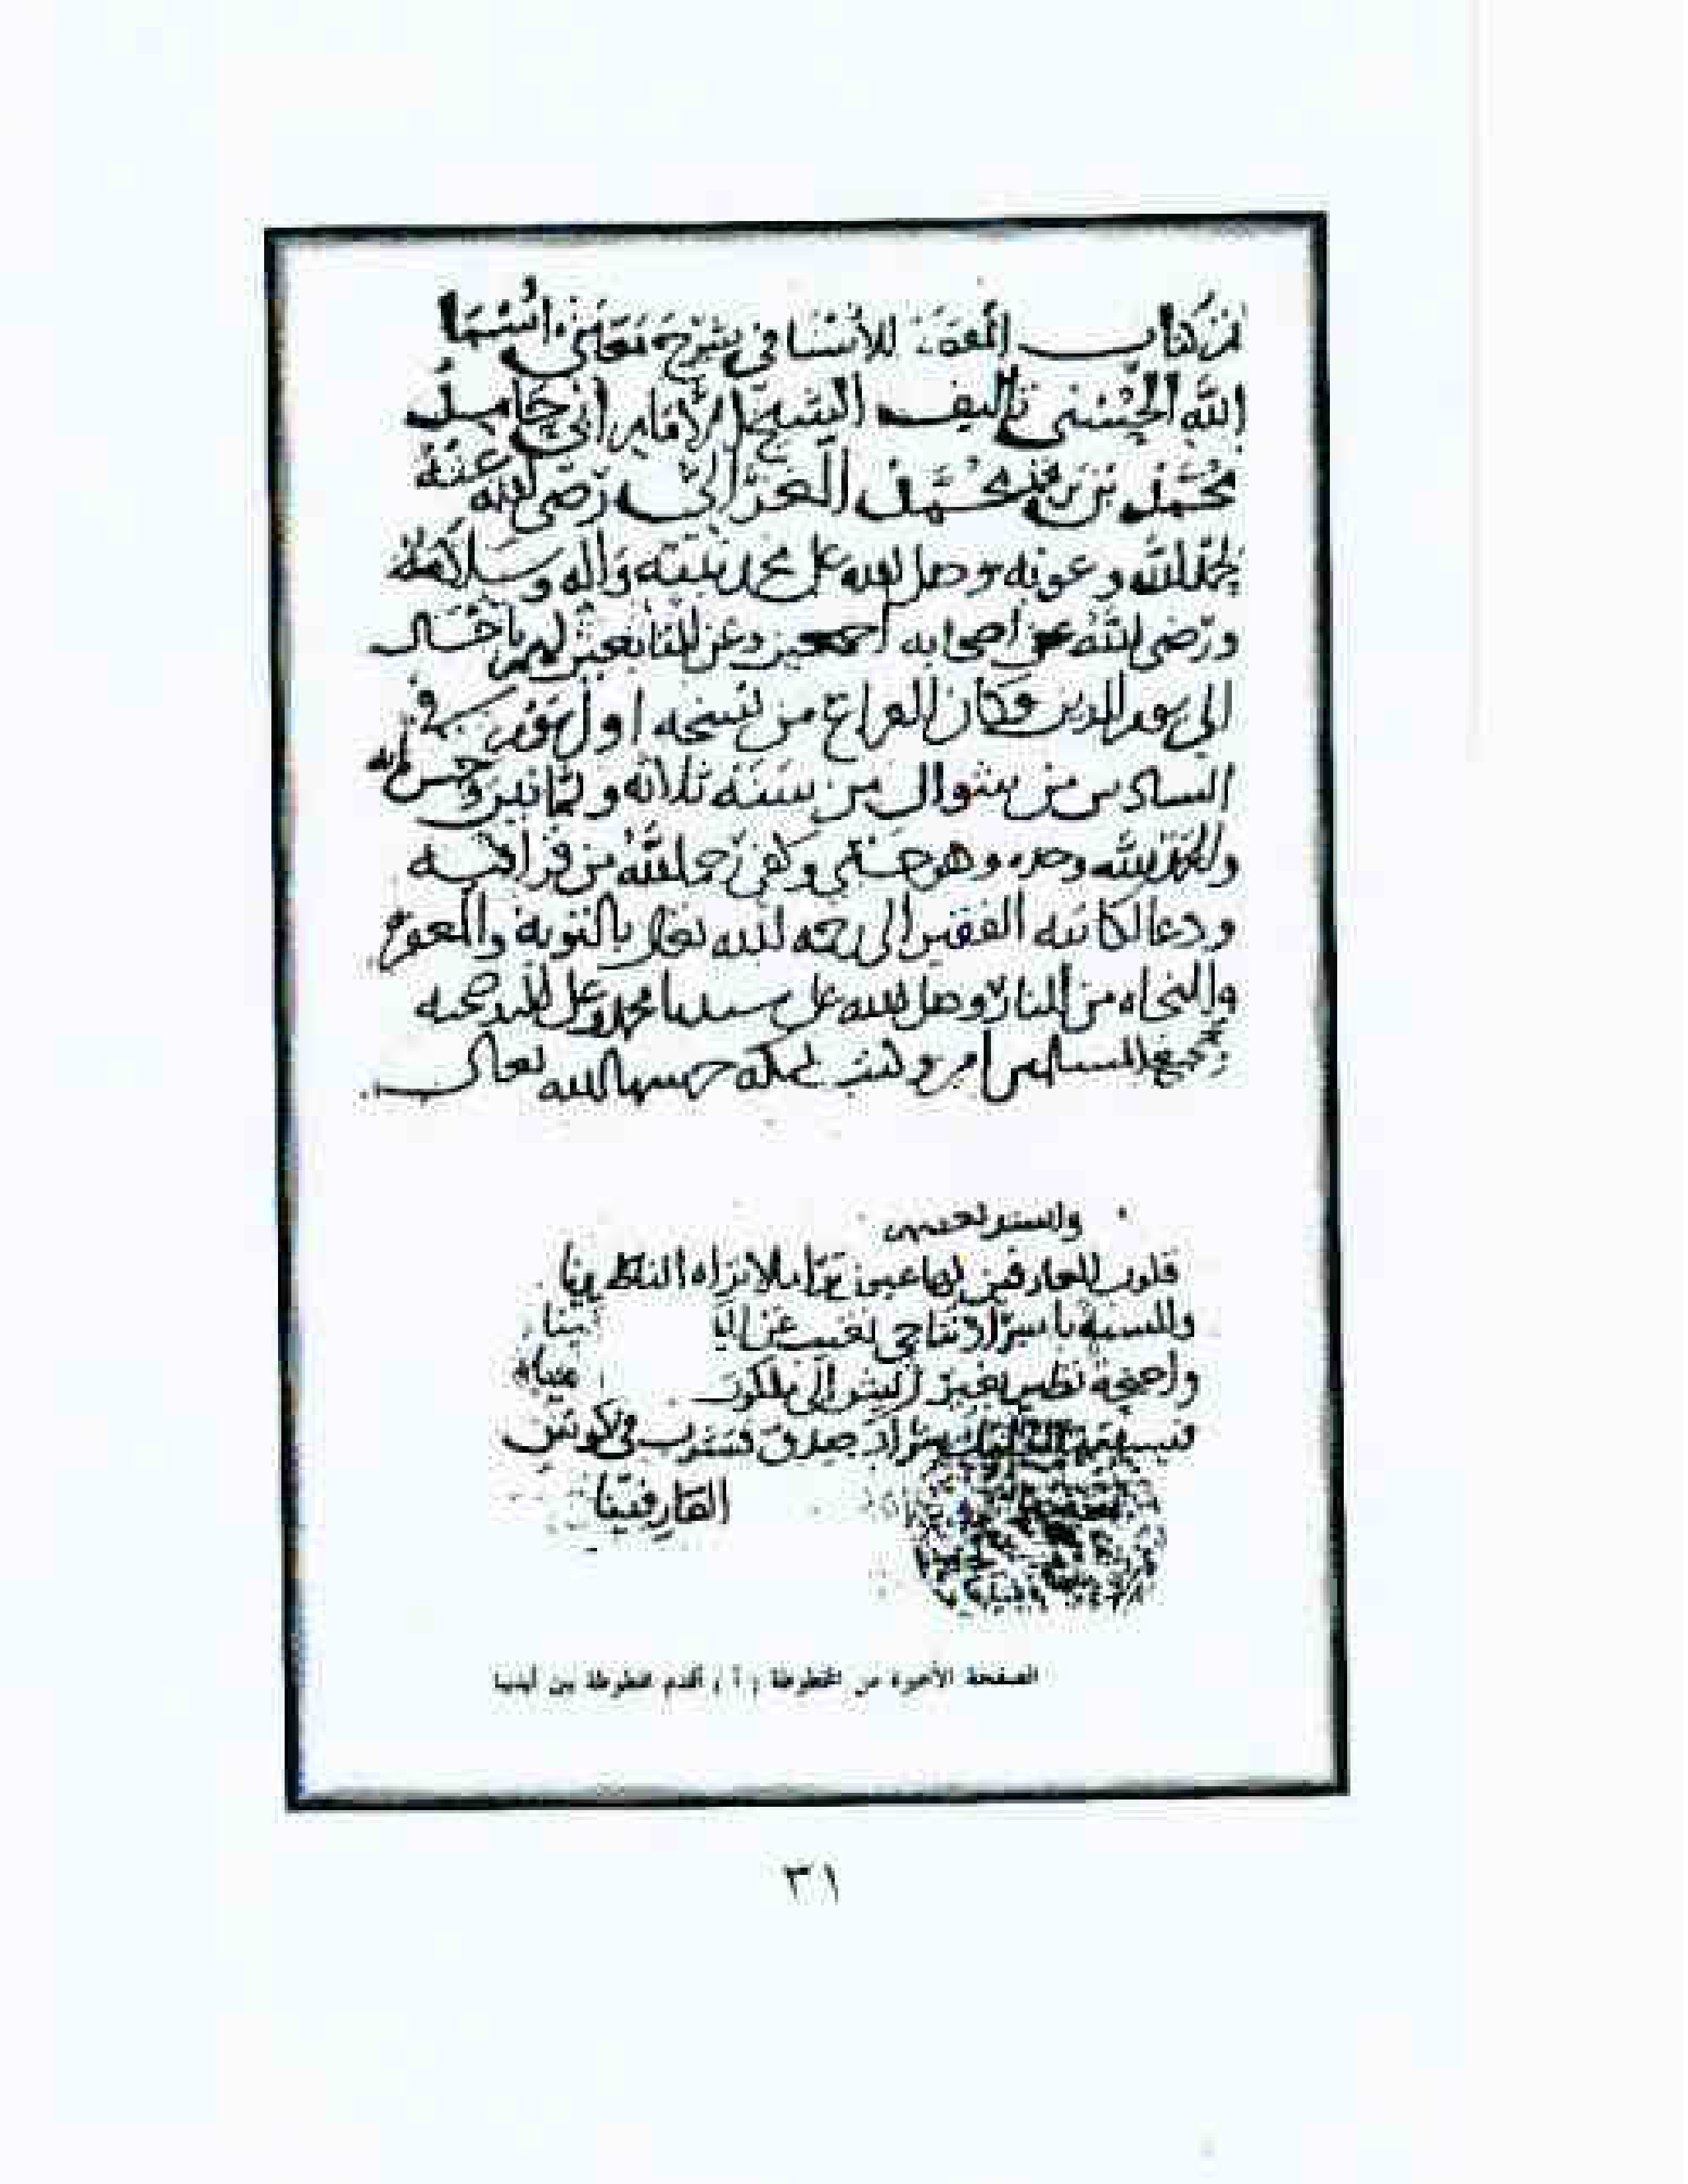 كتاب المقصد الأسنا في شرح معاني أسما
الله الحسنى تأليف الشيخ الإمام أبي حامد
محمد بن محمد بن محمد الغزالي رضي الله عنه
بحمد الله وعونه وصلى الله على محمد نبيه وآله وسلامه
ورضي الله عن أصحابه أجمعين وعن التابعين لهم بإحسان
إلى يوم الدين وكان الفراغ من نسخه أول يوم في
السادس من شوال من سنة ثلاثة وثمانين وخمس مائه
والحمد لله وحده وهو حسبي وكفى رحم الله من قرأ فيه
ودعا لكاتبه الفقير إلى رحمة الله تعالى بالتوبة والمغفرة
والنجاه من النار وصلى الله على سيدنا محمد وعلى آله وصحبه
وجميع المسلمين وكتب بمكه حرسها الله تعالى
قلوب العارفين لها عيون ترا ما لا يراه الناظرينا
والسنة بأسرار تناجي تغيب عن
وأجنحة تطير بغير ريش إلى ملكوت
فنسقيها شراب صدق فتشرب في كوس
العارفينا
الصفحة الأخيرة من المخطوطة ( أ ) أقدم مخطوطة بين أيدينا
٣١